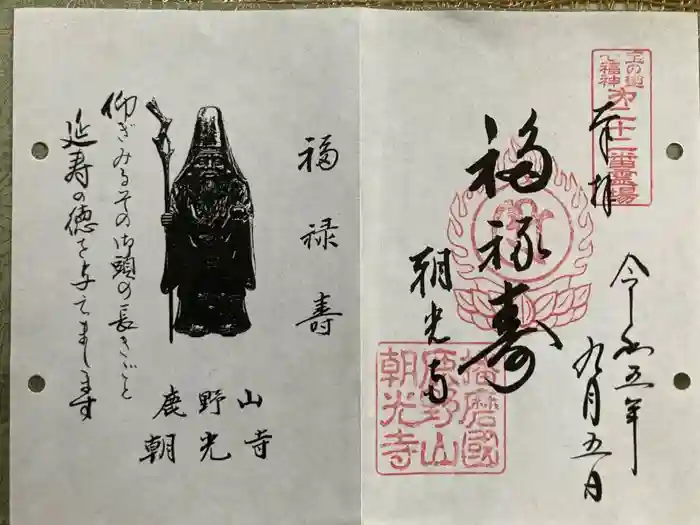 宝の道
七福神
第二十二番霊場
奉拝
福禄寿
朝光寺
令和五年
九月五日
播磨國
鹿野山
朝光寺
福禄寿
仰ぎみるその御頭の長きごと
延寿の徳を与えまします
鹿野山
朝光寺